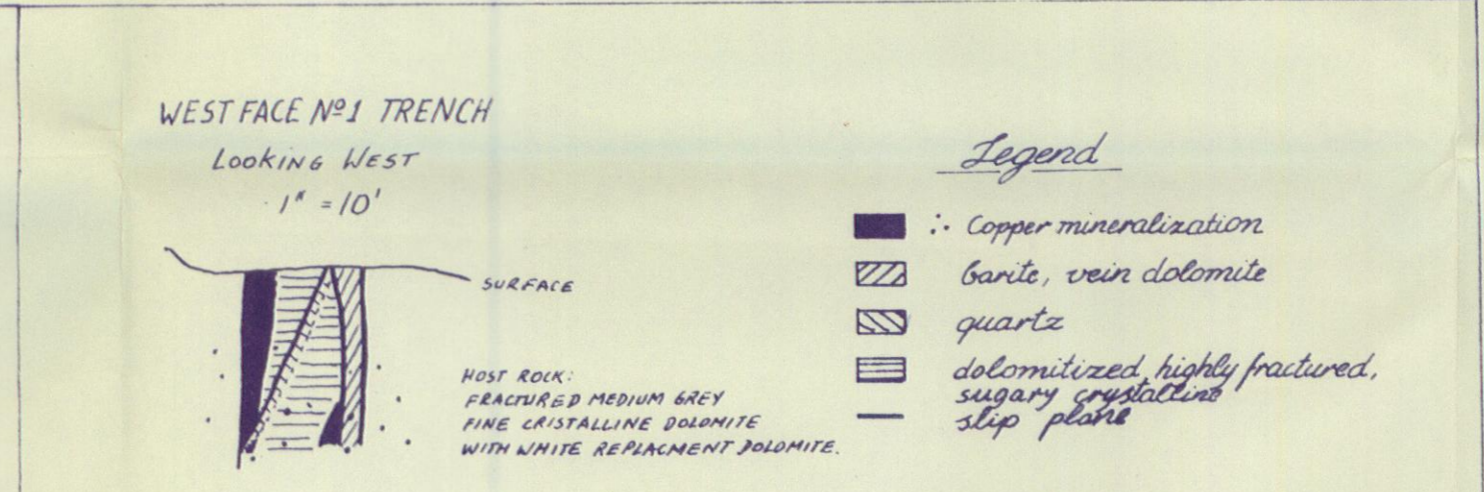 WEST FACE Nº1 TRENCH
LOOKING WEST
1" = 10'
SURFACE
HOST ROCK:
FRACTURED MEDIUM GREY
FINE CRISTALLINE DOLOMITE
WITH WHITE REPLACMENT DOLOMITE.
Legend
Copper mineralization
barite, vein dolomite
quartz
dolomitized, highly fractured,
sugary crystalline
slip plane